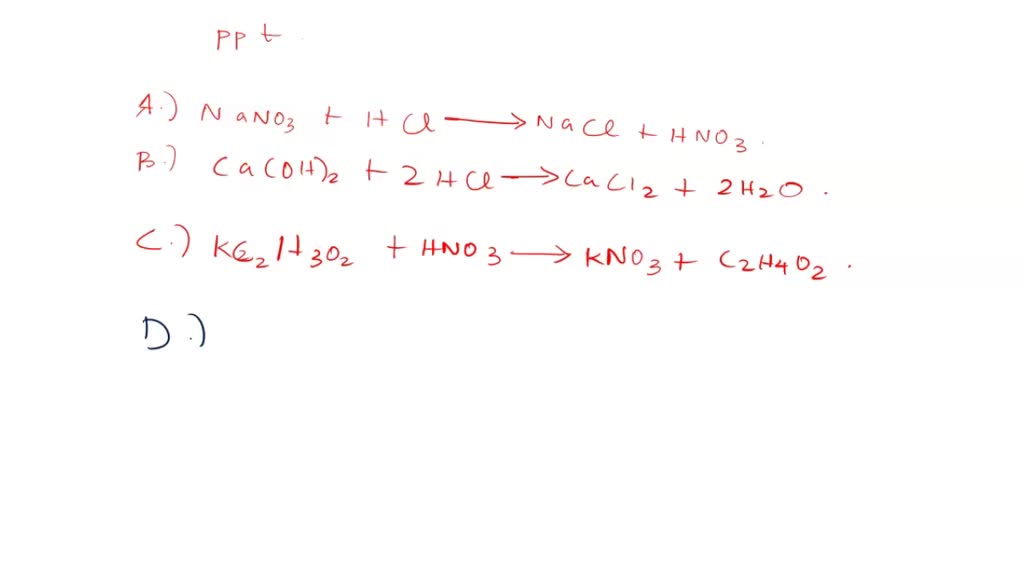 ppt
A.) NaNO3 + HCl → NaCl + HNO3.
B.) Ca(OH)2 + 2HCl → CaCl2 + 2H2O.
C.) KC2H3O2 + HNO3 → KNO3 + C2H4O2.
D.)